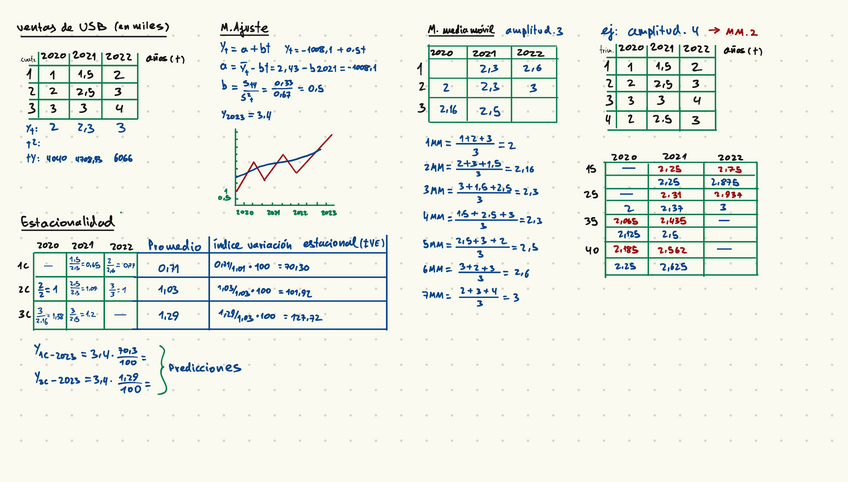 ventas de USB (en miles)
2020 2021 2022 años (t)
1 1 1,5 2
2 2 2,5 3
3 3 3 4
Yt: 2 2,3 3
t2:
tY: 4040 6066
M. Ajuste
Yt = a + bt Yt = -1008,1 + 0,5t
b = = 0,33/0,67 = 0,5
Y2023 = 3,4
1
0,5
2020 2021 2022 2023
M. media móvil amplitud. 3
2020 2021 2022
1 2,3 2,6
2 2 2,3 3
3 2,16 2,5
1MM = 1+2+3/3 = 2
2MM = 2+3+1,5/3 = 2,16
3MM = 3+1,5+2,5/3 = 2,3
4MM = 1,5+2,5+3/3 = 2,3
5MM = 2,5+3+2/3 = 2,5
6MM = 3+2+3/3 = 2,6
7MM = 2+3+4/3 = 3
ej: amplitud. 4 → MM.2
trim. 2020 2021 2022 años (t)
1 1 1,5 2
2 2 2,5 3
3 3 3 4
4 2 2.5 3
2020 2021 2022
15 — 2,25 2,75
2,25 2,875
25 — 2.31 2.937
2 2,37 3
35 2,435 —
2,125 2,5
2,562 —
2,25 2,625
Estacionalidad
2020 2021 2022 Promedio índice variación estacional (IVE)
1c — 0,71 · 100 = 70,30
2C 2/2 = 1 2,5/2,3 = 1,09 3/3 = 1 1,03 1,03/1,01 · 100 = 101,92
3C 3/2,16 = 1,38 3/2,5 = 1.2 — 1,29 · 100 = 127,72
Y1C-2023 = 3,4 · 70,3/100 =
Y3C-2023 = 3,4 · 1,29/100 =
Predicciones